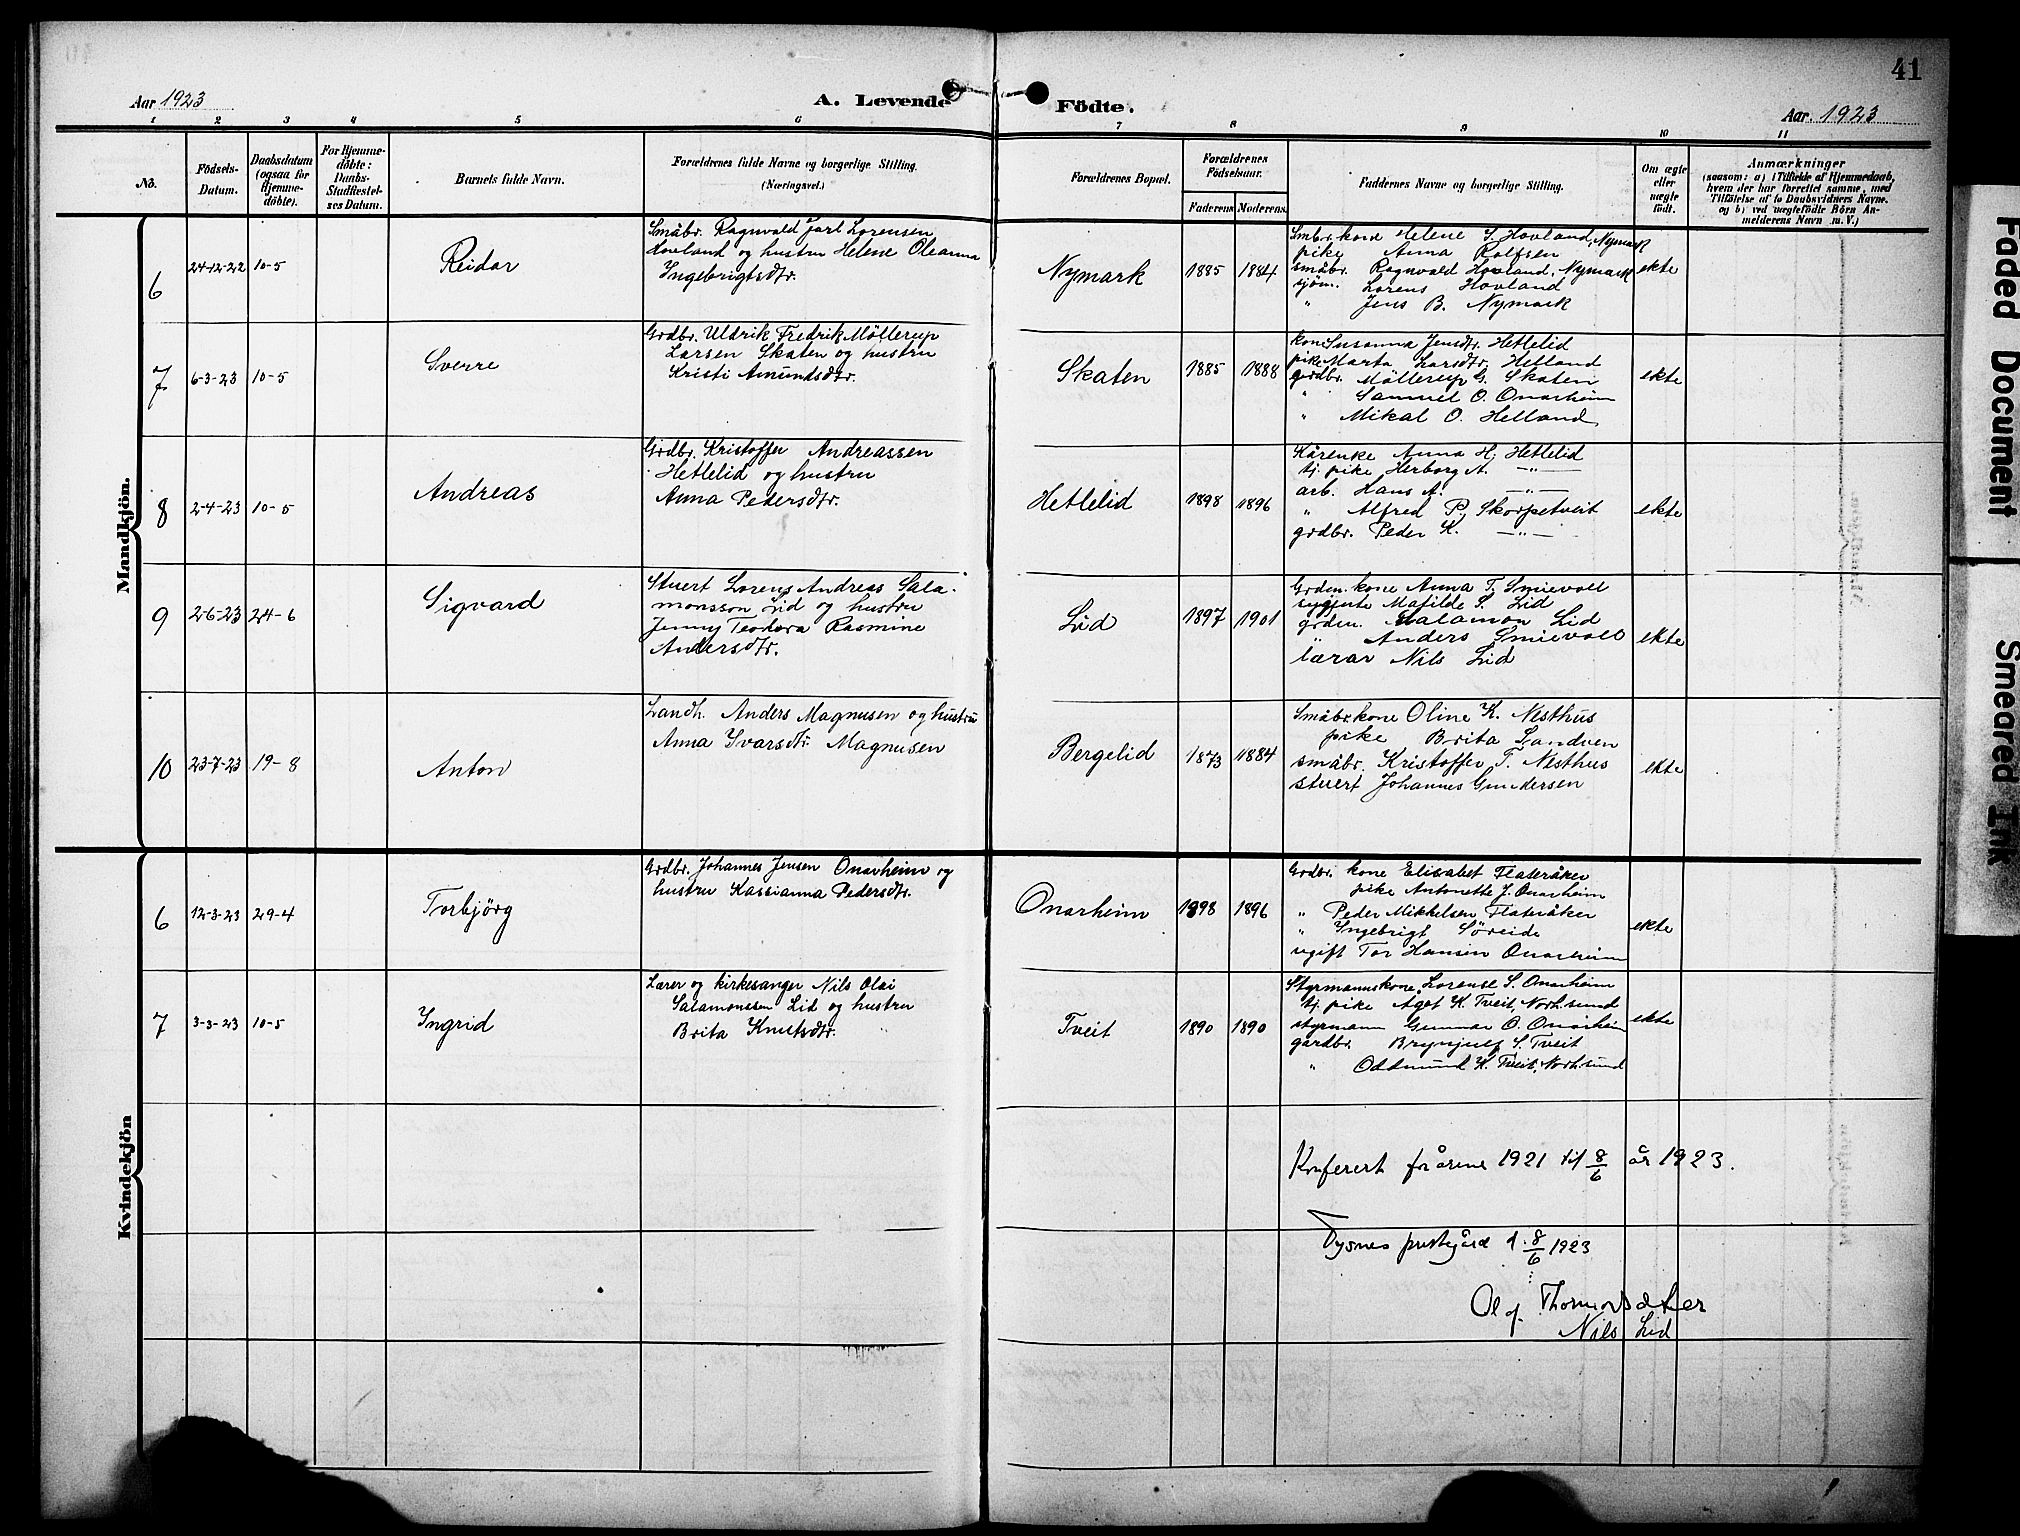 41
Aar 1923
A. Levende Födte.
Aar. 1923
1 2 3 4 5 6 7 8 9 10 11
No.
Födsels-Datum.
Daabsdatum (ogsaa for Hjemme-döbte).
For Hjemme-döbte: Daabs-Stadfæstel-ses Datum.
Barnets fulde Navn.
Forældrenes fulde Navne og borgerlige Stilling. (Næringsvei.)
Forældrenes Bopæl.
Forældrenes Födselsaar.
Faderens Moderens
Faddernes Navne og borgerlige Stilling.
Om ægte eller uægte födt.
Anmærkninger
(saasom: a) i Tilfælde af Hjemmedaab, hvem der har forrettet samme, med Tilföielse af to Daabsvidners Navne, og b) ved uægtefödte Börn An-melderens Navn m. V.)
Mandkjön.
6 24-12-22 10-5 Reidar
Småbr. Ragnvald Jarl Lorensen
Hovland og hustru Helene Oleanna
Ingebrigtsdtr.
Nymark 1885 1884
Smbr. kone Helene S. Hovland, Nymark
pike Anna Rolfsen
småbr. Ragnvald Hovland, Nymark
sjøm. Lorens Hovland
" Jens B. Nymark
ekte
7 6-3-23 10-5 Sverre
Grdbr. Uldrik Fredrik Möllerup
Larsen Skaten og hustru
Kristi Amundsdtr.
Skaten 1885 1888
kone Susanna Jensdtr. Hetlelid
pike Marta Larsdtr. Helland
grdbr. Möllerup G. Skaten
" Samuel O. Onarheim
" Mikal O. Helland
ekte
8 2-4-23 10-5 Andreas
Grdbr. Kristoffer Andreassen
Hetlelid og hustru
Anna Pedersdtr.
Hetlelid 1898 1896
Kårenke Anna H. Hetlelid
tj. pike Herborg A. —"—
arb. Hans A. —"—
" Alfred P. Skorpetveit
grdbr. Peder K. —"—
ekte
9 2-6-23 24-6 Sigvard
Stuert Lorens Andreas Sala-
monsson Lid og hustru
Jenny Teodora Rasmine
Andersdtr.
Lid 1897 1901
Grdm. kone Anna T. Smievoll
sygjente Matilde S. Lid
grdm. Salamon Lid
" Anders Smievoll
lærar Nils Lid
ekte
10 23-7-23 19-8 Anton
Landh. Anders Magnusen og hustru
Anna Ivarsdtr. Magnusen
Bergelid 1873 1884
Småbr. kone Oline K. Nesthus
pike Brita Sandven
småbr. Kristoffer T. Nesthus
stuert Johannes Gundersen
ekte
Kvindekjön
6 12-3-23 29-4 Torbjörg
Grdbr. Johannes Jensen Onarheim og
hustru Kassianna Pedersdtr.
Onarheim 1898 1896
Grdbr. kone Elisabet Flateråker
pike Antonette J. Onarheim
" Peder Mikkelsen Flateråker
" Ingebrigt Søreide
ugift Tor Hansen Onarheim
ekte
7 3-3-23 10-5 Ingrid
Lærer og kirkesanger Nils Olai
Salamonsen Lid og hustru
Brita Knutsdtr.
Tveit 1890 1890
Styrmannskone Lorense S. Onarheim
tj. pike Agot K. Tveit, Norh.sund
styrmann Gunnar O. Onarheim
gardbr. Brynjulf S. Tveit
" Oddmund K. Tveit, Norh.sund
ekte
Konferert for årene 1921 til 8/6 år 1923.
Tysnes prestegård d. 8/6 1923
Olaf Thormodsæter
Nils Lid
Faded Document
Smeared Ink